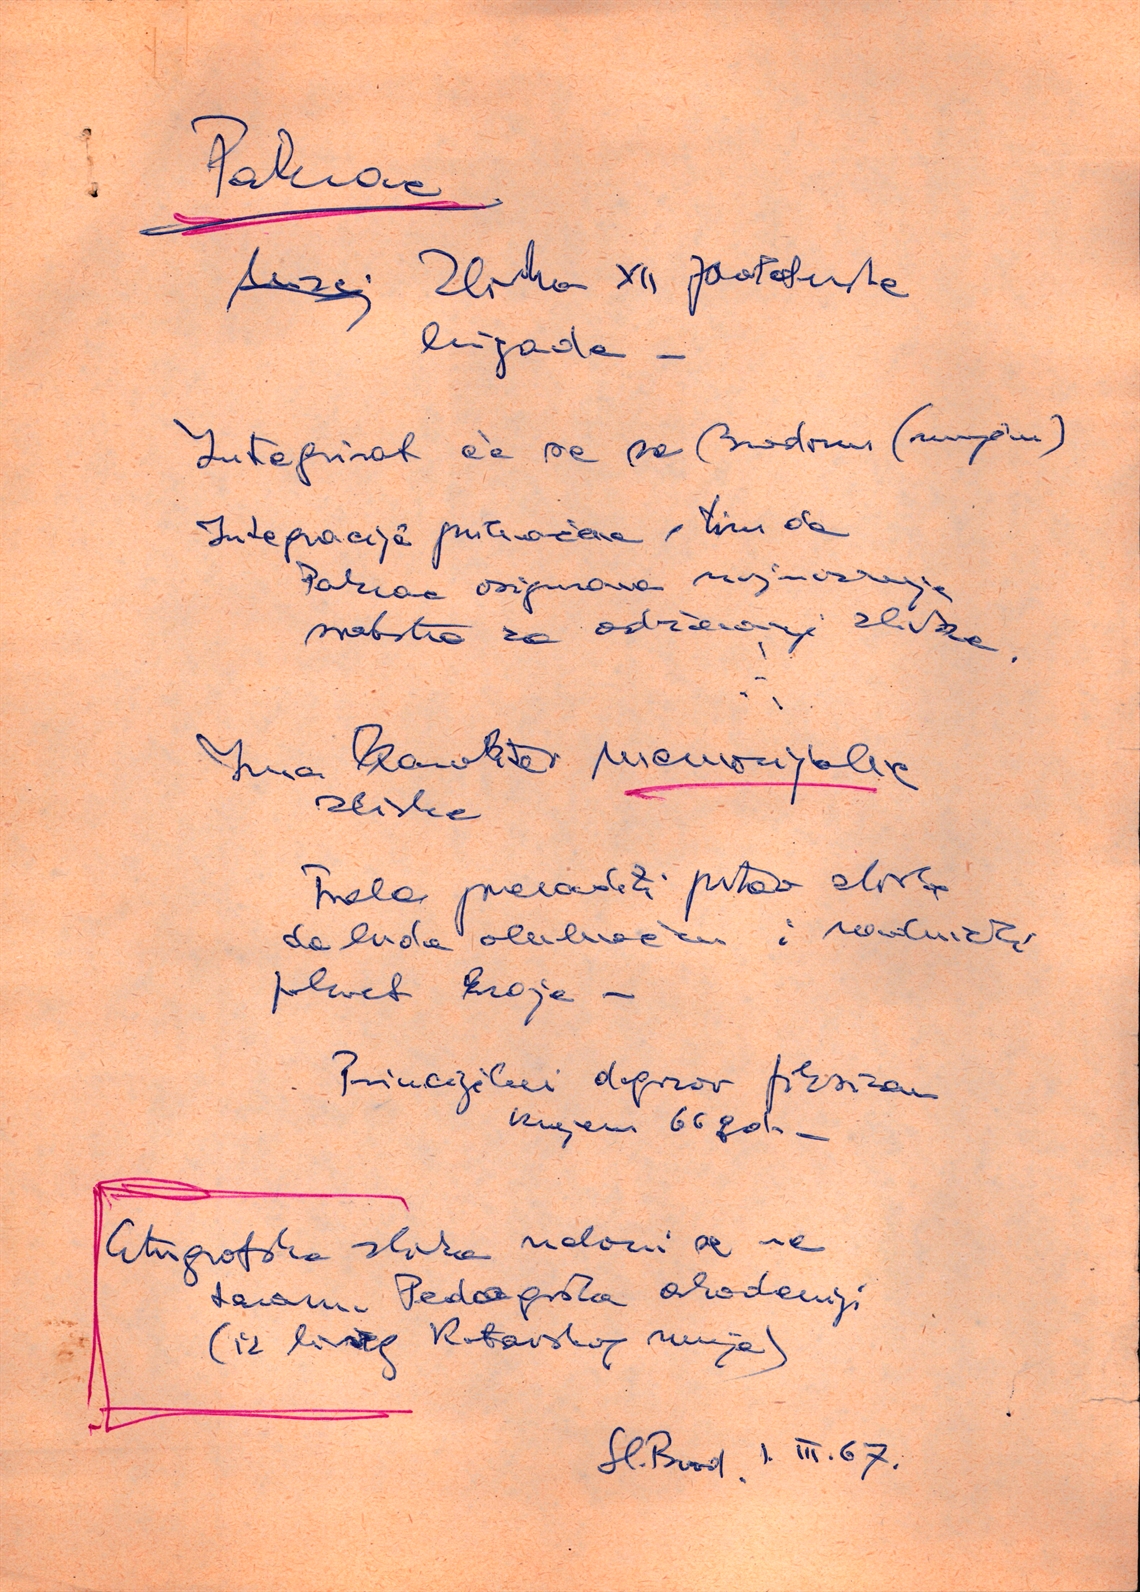 Pakrac
Muzej Zbirka XII proleterske
brigade –
Integrirat će se sa Brodom (muzejem)
Integracija prihvaćena s tim da
Pakrac osigurava najnužnija
sredstva za održavanje zbirke.
Ima karakter memorijalne
zbirke
Treba preraditi postav zbirke
da bude obuhvaćen i radnički
pokret kraja –
Principijelni dogovor fiksiran
krajem 66 god. –
Etnografska zbirka nalazi se na
tavanu Pedagoška akademiji
(iz bivšeg Kotarskog muzeja)
Sl. Brod. 1. III. 67.